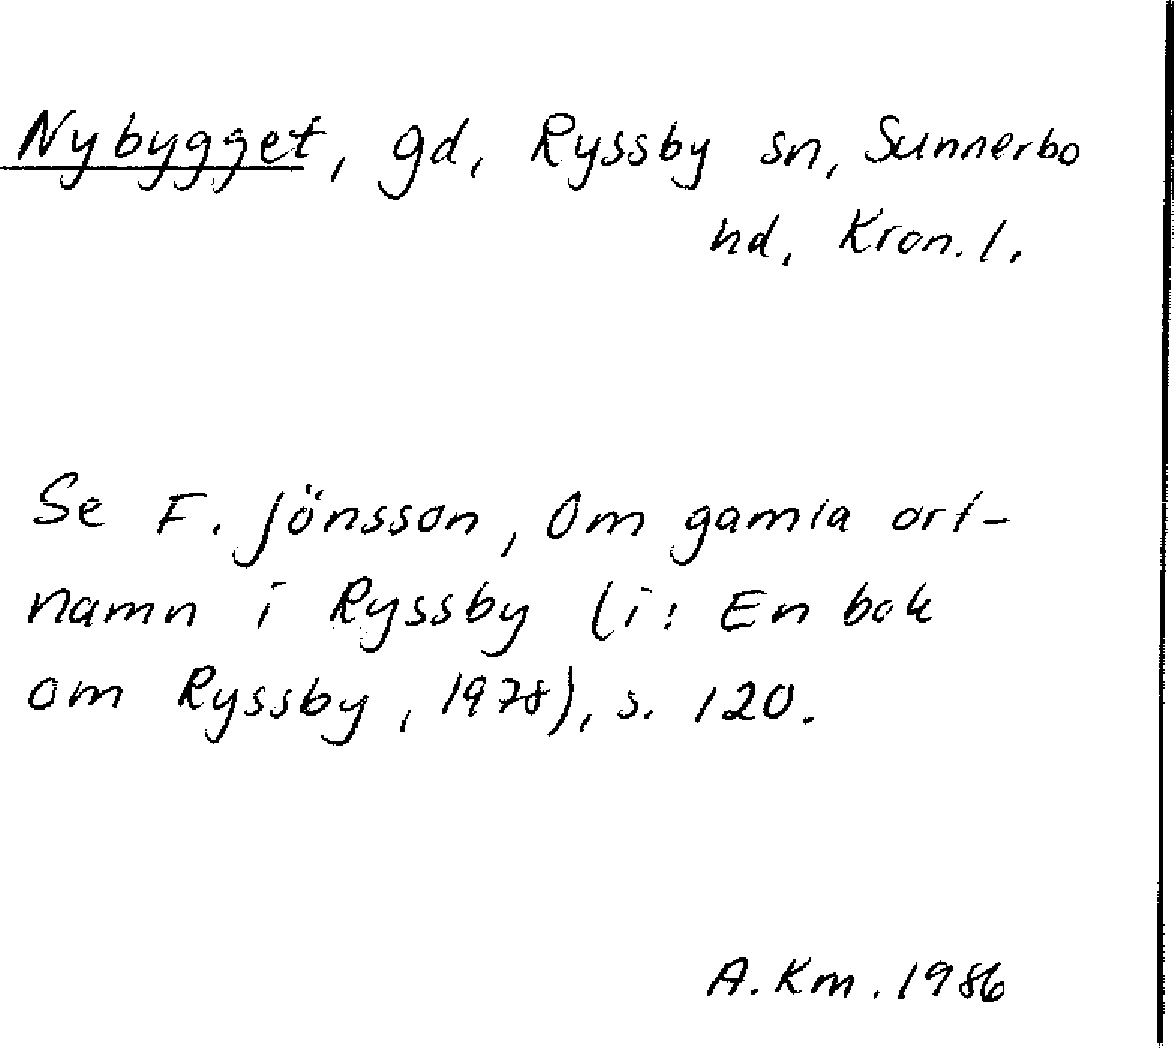 Nybygget, gd, Ryssby sn, Sunnerbo
hd, Kron. l.
Se F. Jönsson, Om gamla ort-
namn i Ryssby (i: En bok
om Ryssby, 1978), s. 120.
A. Km. 1986